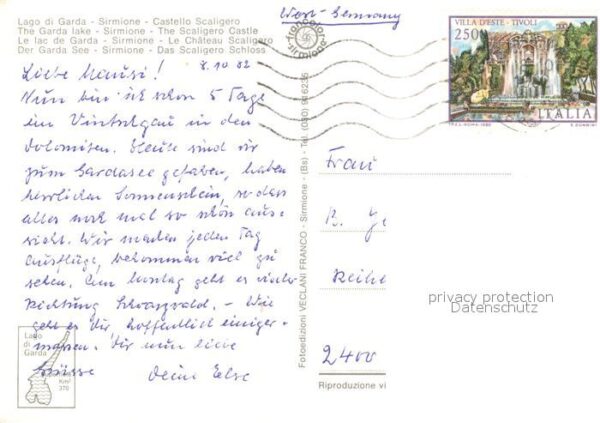 Lago di Garda - Sirmione - Castello Scaligero
The Garda lake - Sirmione - The Scaligero Castle
Le lac de Garda - Sirmione - Le Château Scaligero
Der Garda See - Sirmione - Das Scaligero Schloss
West-Germany
francobolli
sirmione
VILLA D'ESTE - TIVOLI
250
ITALIA
I.P.Z.S. ROMA - 1982
8.10.82
Liebe Mausi!
Nun bin ich schon 5 Tage
im Vintschgau in den
Dolomiten. Heute sind wir
zum Gardasee gefahren, haben
herrlichen Sonnenschein, so dass
alles noch mal so schön aus-
sieht. Wir machen jeden Tag
Ausflüge, bekommen viel zu
sehen. Am Montag geht es wieder
Richtung Schwarzwald. - Wie
geht es Dir, hoffentlich einiger-
massen. Dir nun liebe
Grüsse Deine Else
Lago
di
Garda
Km²
370
Fotoedizioni VECLANI FRANCO - Sirmione - (Bs) - Tel. (030) 916235
Frau
B. Je
Reihe
privacy protection
Datenschutz
2400
Riproduzione vi